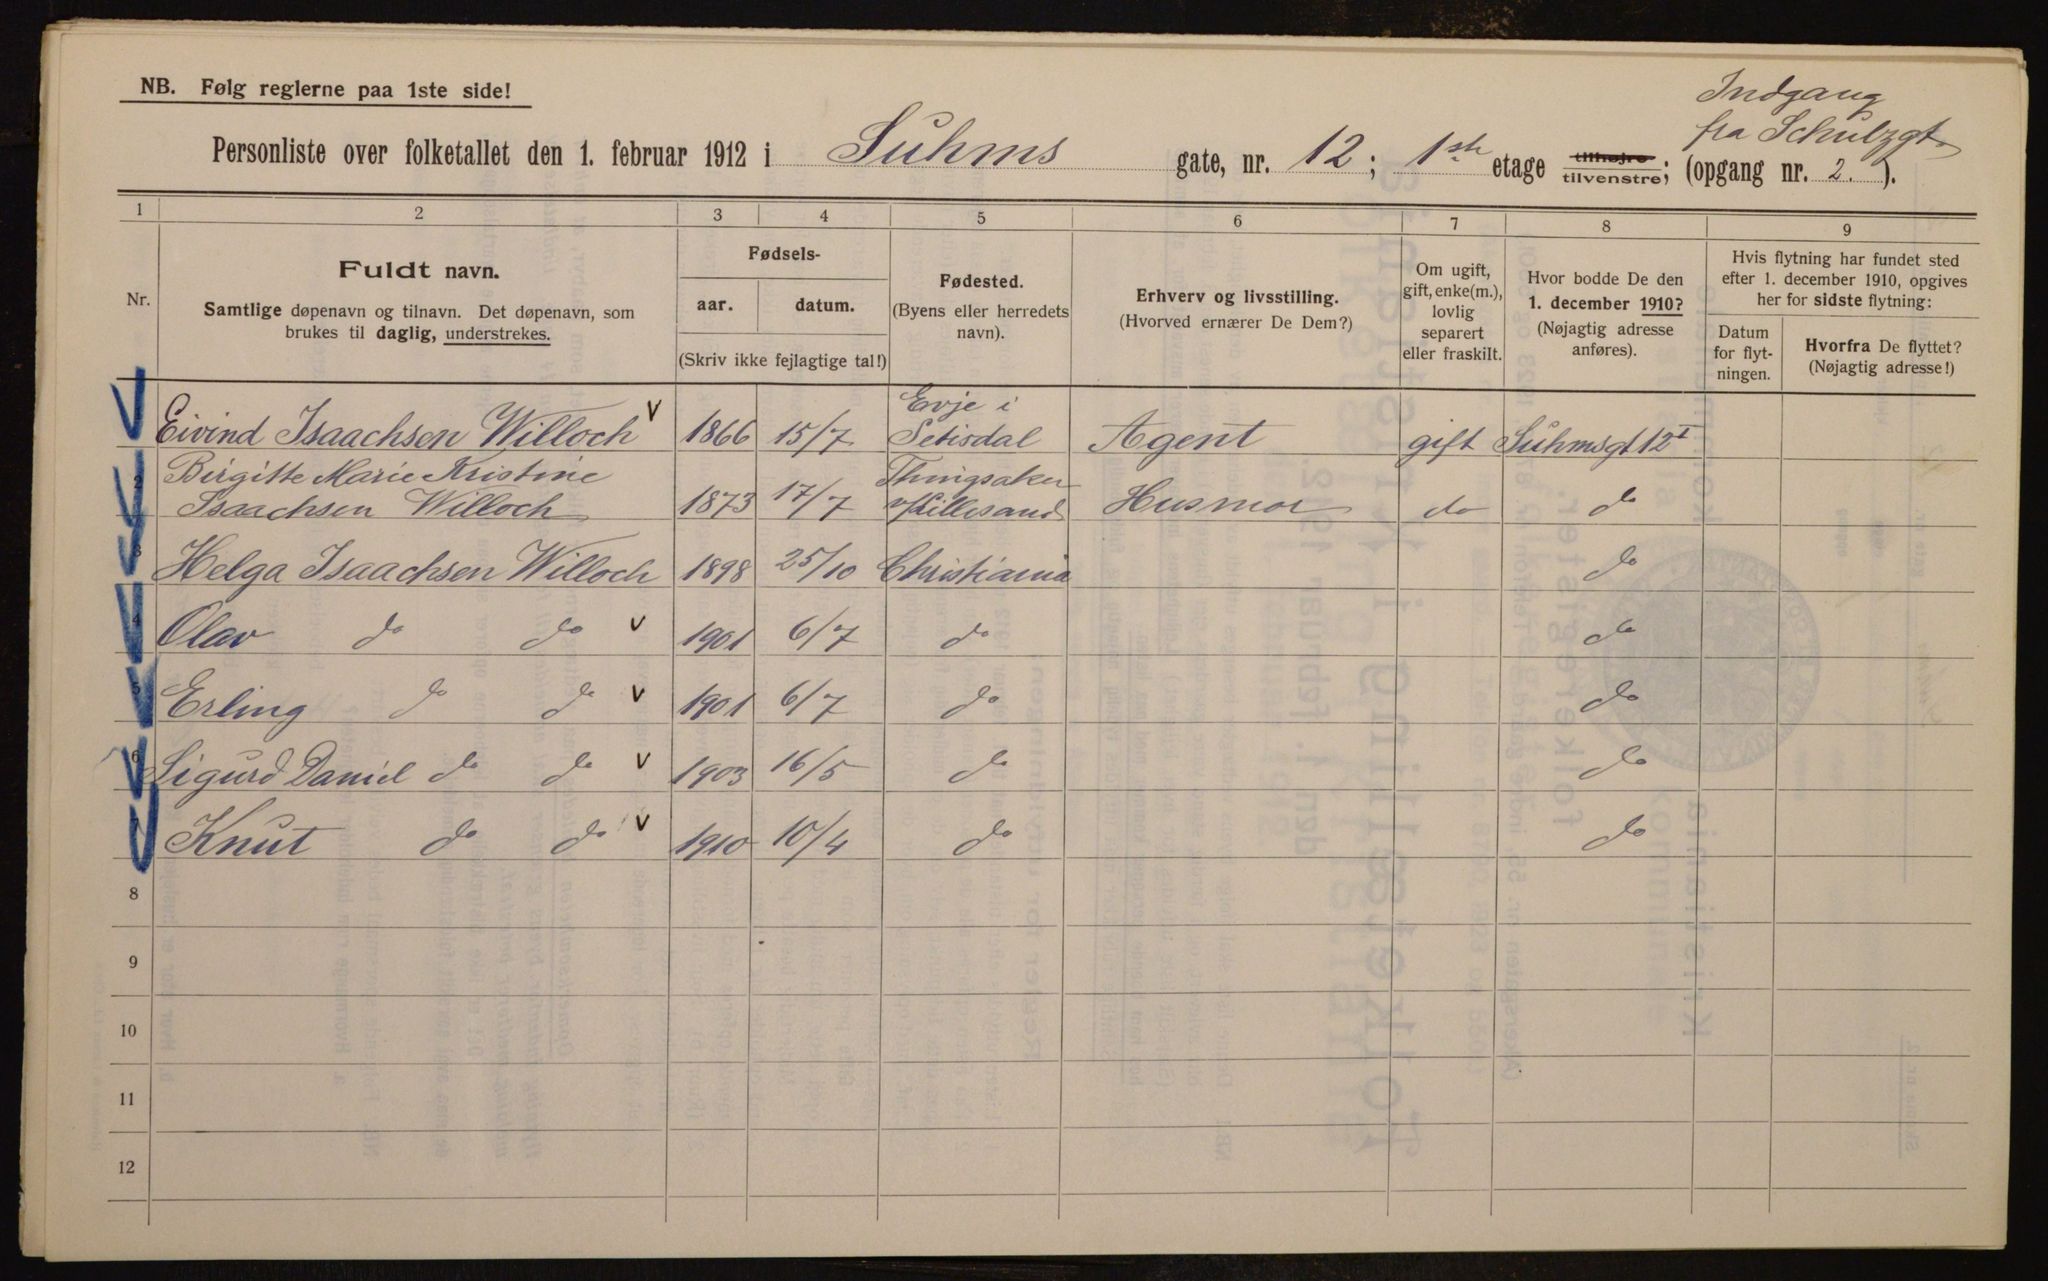 NB. Følg reglerne paa 1ste side!
Indgang
fra Schulzgt.
Personliste over folketallet den 1. februar 1912 i Suhms gate, nr. 12; 1ste etage tilhøjre tilvenstre; (opgang nr. 2.).
1 2 3 4 5 6 7 8 9
Nr.
Fuldt navn.
Samtlige døpenavn og tilnavn. Det døpenavn, som
brukes til daglig, understrekes.
Fødsels-
aar. datum.
(Skriv ikke fejlagtige tal!)
Fødested.
(Byens eller herredets
navn).
Erhverv og livsstilling.
(Hvorved ernærer De Dem?)
Om ugift,
gift, enke(m.),
lovlig
separert
eller fraskilt.
Hvor bodde De den
1. december 1910?
(Nøjagtig adresse
anføres).
Hvis flytning har fundet sted
efter 1. december 1910, opgives
her for sidste flytning:
Datum
for flyt-
ningen.
Hvorfra De flyttet?
(Nøjagtig adresse!)
Eivind Isaachsen Willoch v 1866 15/7 Evje i
Setisdal Agent gift Suhmsgt 12 I
2 Birgitte Marie Kristine
Isaachsen Willoch 1873 17/7 Thingsaker
v/Lillesand Husmor do do
3 Helga Isaachsen Willoch 1898 25/10 Christiania do
4 Olav do do v 1901 6/7 do do
5 Erling do do v 1901 6/7 do do
6 Sigurd Daniel do do v 1903 16/5 do do
7 Knut do do v 1910 10/4 do do
8
9
10
11
12